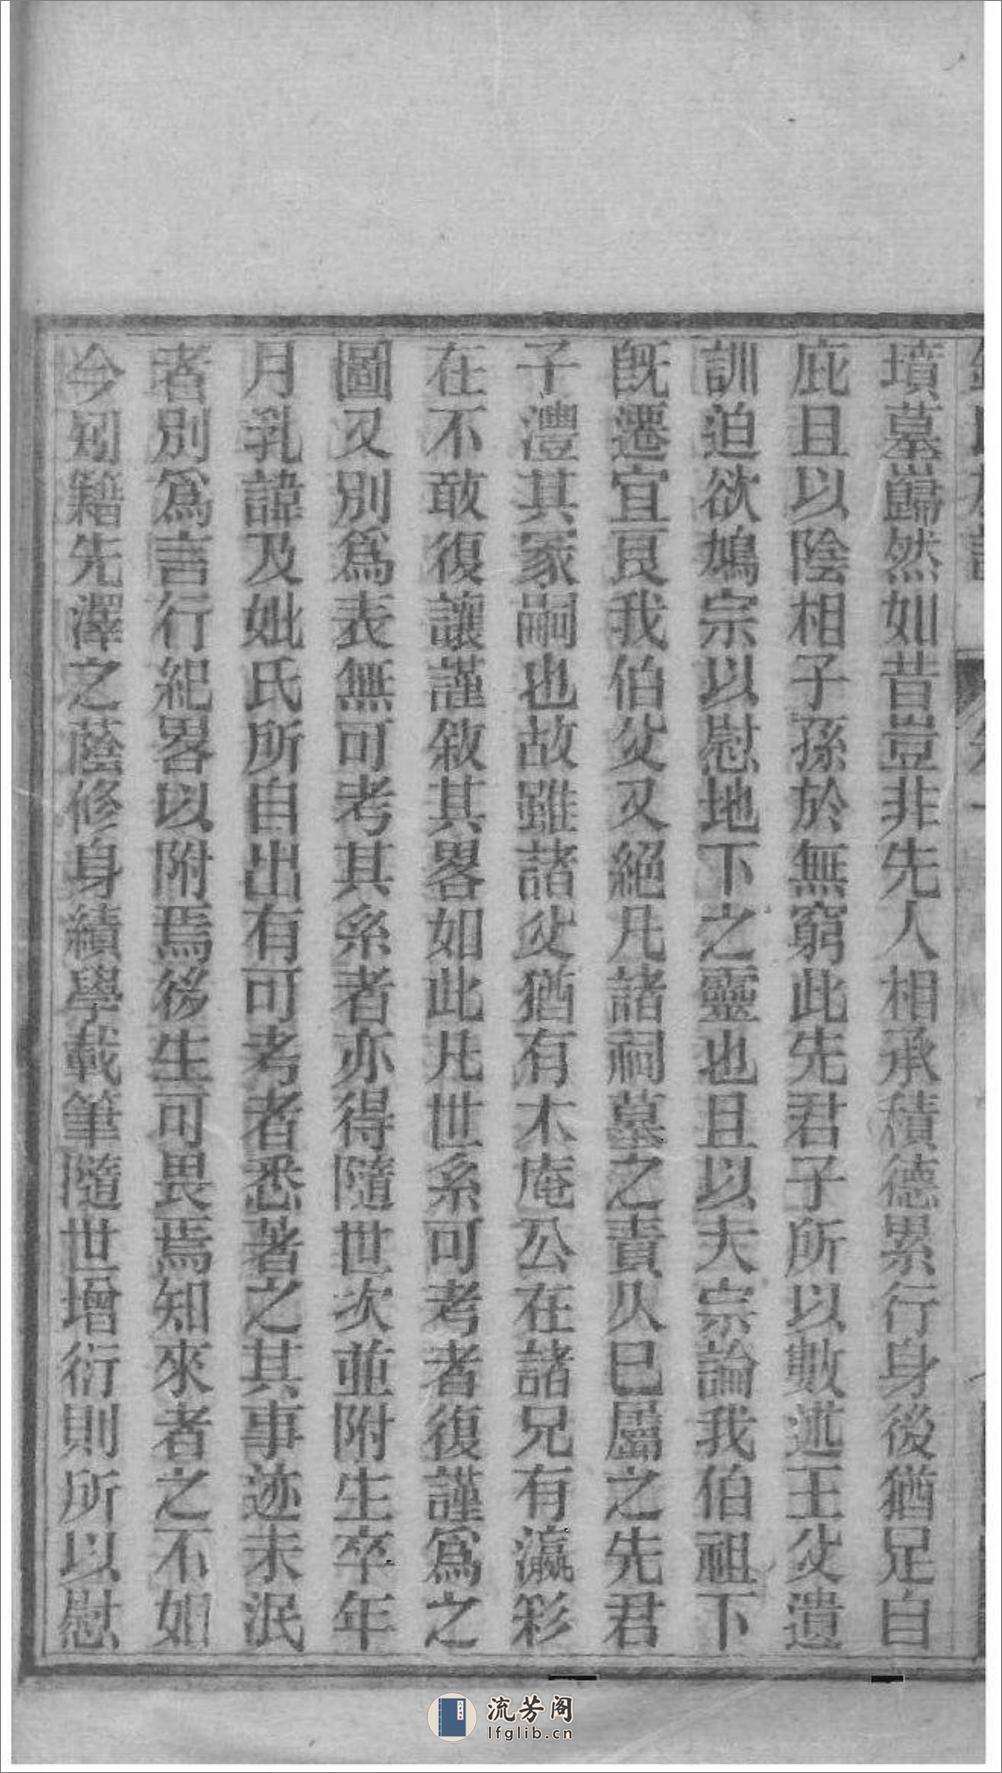 墳墓巋然如昔豈非先人相承積德累行身後猶足自
庇且以陰相子孫於無窮此先君子所以數述王父遺
訓迫欲鳩宗以慰地下之靈也且以大宗論我伯祖下
旣遷宜艮我伯父又絕凡諸祠墓之責久已屬之先君
子澧其冢嗣也故雖諸父猶有木庵公在諸兄有瀛彩
在不敢復讓謹敘其畧如此凡世系可考者復謹爲之
圖又別爲表無可考其系者亦得隨世次並附生卒年
月乳諱及妣氏所自出有可考者悉著之其事迹未泯
者別爲言行紀畧以附焉後生可畏焉知來者之不如
今矧籍先澤之蔭修身績學載筆隨世增衍則所以慰
流芳阁
lfglib.cn